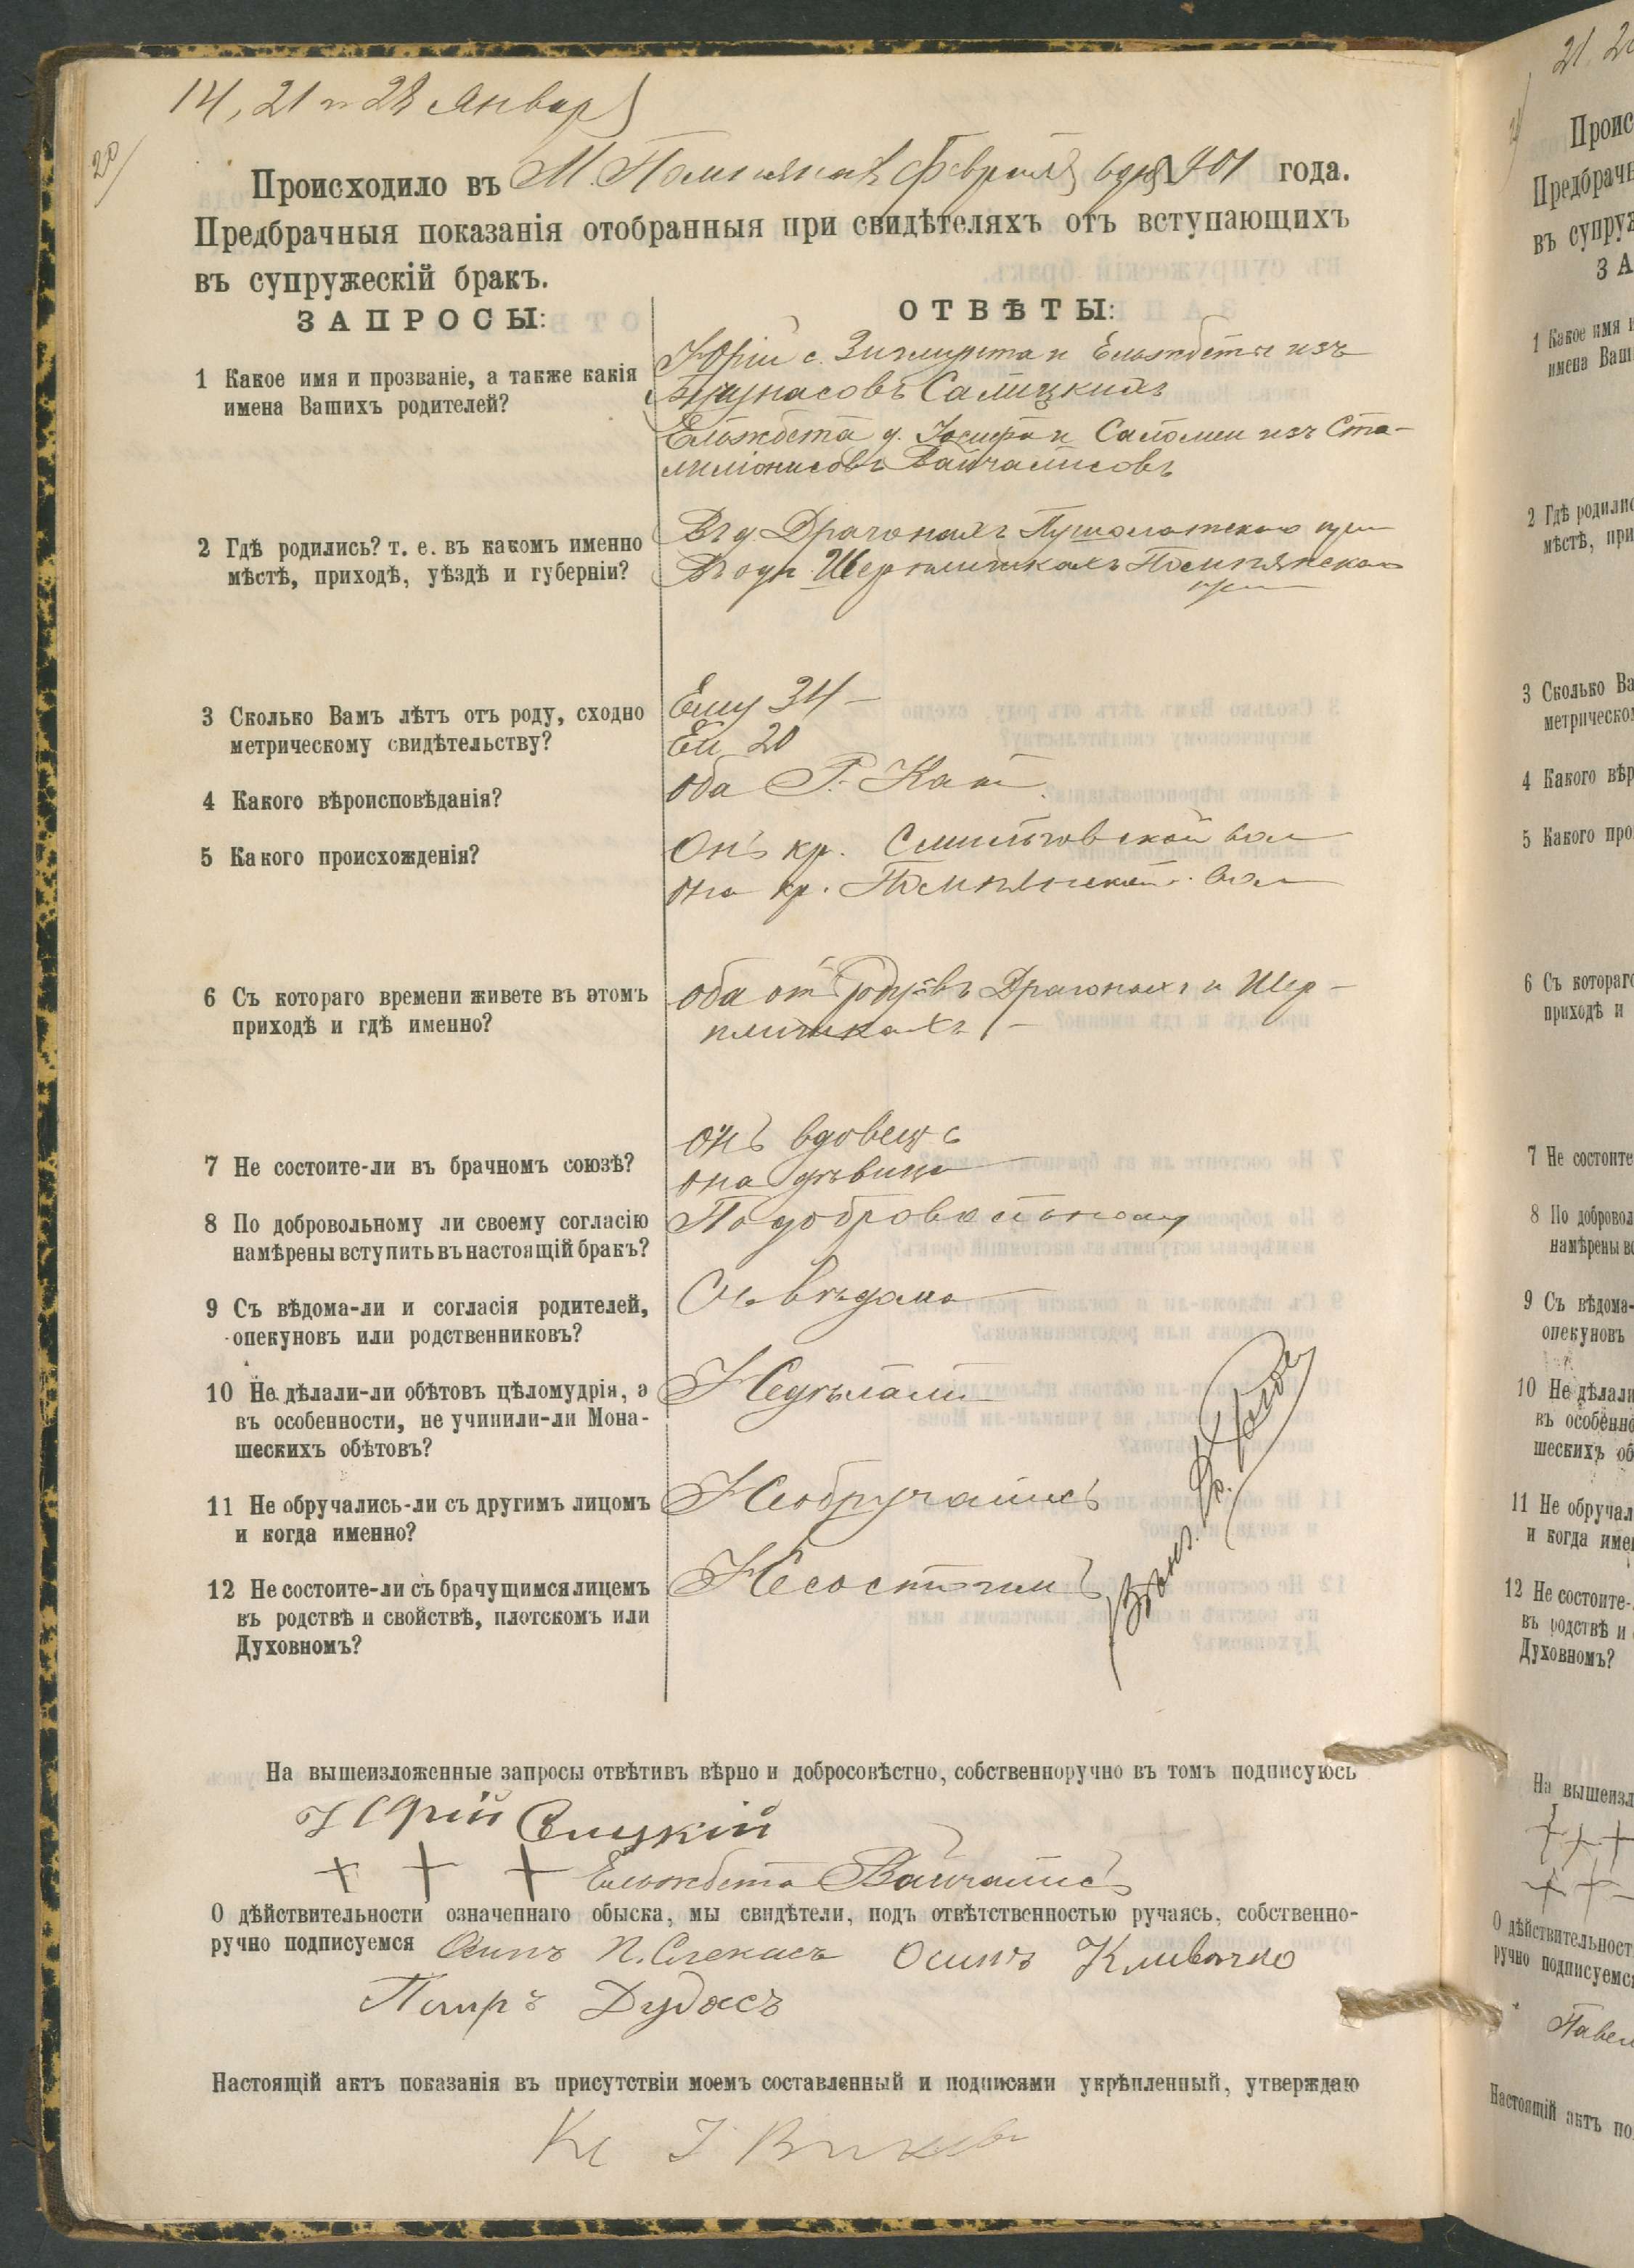 14, 21 и 28 Январ
20/
Происходило въ М. Помпянахъ Февраля 6 дня 1901 года.
Предбрачныя показанія отобранныя при свидѣтеляхъ отъ вступающихъ
въ супружескій бракъ.
ЗАПРОСЫ:
ОТВѢТЫ:
1 Какое имя и прозваніе, а также какія
имена Вашихъ родителей?
Юрій с. Зигмунта и Ельжбеты изъ
Салицкихъ
Ельжбета д. Іосифа и Саломеи изъ Ста-
Вайчалисовъ
2 Гдѣ родились? т. е. въ какомъ именно
мѣстѣ, приходѣ, уѣздѣ и губерніи?
Въ д. Драгонахъ Пушолатскаго при
Въ Шерплишкахъ Помпянскаго
при
3 Сколько Вамъ лѣтъ отъ роду, сходно
метрическому свидѣтельству?
Ему 34 —
Ей 20
4 Какого вѣроисповѣданія?
оба Р. Кат
5 Какого происхожденія?
Онъ кр. Смильговской вол
она кр. Помпянской вол
6 Съ котораго времени живете въ этомъ
приходѣ и гдѣ именно?
оба отъ роду въ Драгонахъ и Шер-
плишкахъ —
7 Не состоите-ли въ брачномъ союзѣ?
онъ вдовецъ
она дѣвица
8 По добровольному ли своему согласію
намѣрены вступить въ настоящій бракъ?
По добровольному
9 Съ вѣдома-ли и согласія родителей,
опекуновъ или родственниковъ?
Съ вѣдома
10 Не дѣлали-ли обѣтовъ цѣломудрія, а
въ особенности, не учинили-ли Мона-
шескихъ обѣтовъ?
Недѣлали
11 Не обручались-ли съ другимъ лицомъ
и когда именно?
Необручались
12 Не состоите-ли съ брачущимся лицемъ
въ родствѣ и свойствѣ, плотскомъ или
Духовномъ?
Несостоимъ
На вышеизложенные запросы отвѣтивъ вѣрно и добросовѣстно, собственноручно въ томъ подписуюсь
Юрій
+ + + Ельжбета Вайчалисъ
О дѣйствительности означеннаго обыска, мы свидѣтели, подъ отвѣтственностью ручаясь, собственно-
ручно подписуемся Осипъ П. Слекасъ Осипъ Кливечко
Петръ Дудасъ
Настоящій актъ показанія въ присутствіи моемъ составленный и подписями укрѣпленный, утверждаю
21, 2
Проис
Предбрачн
въ супруж
ЗА
1 Какое имя и
имена Ваши
2 Гдѣ родилис
мѣстѣ, при
3 Сколько Ва
метрическо
4 Какого вѣр
5 Какого про
6 Съ котораг
приходѣ и
7 Не состоите
8 По добровол
намѣрены вс
9 Съ вѣдома-
опекуновъ
10 Не дѣлали
въ особенно
шескихъ об
11 Не обручал
и когда име
12 Не состоите-
въ родствѣ и
Духовномъ?
На вышеизл
+ + +
+ +
О дѣйствительност
ручно подписуемс
Павел
Настоящій актъ по